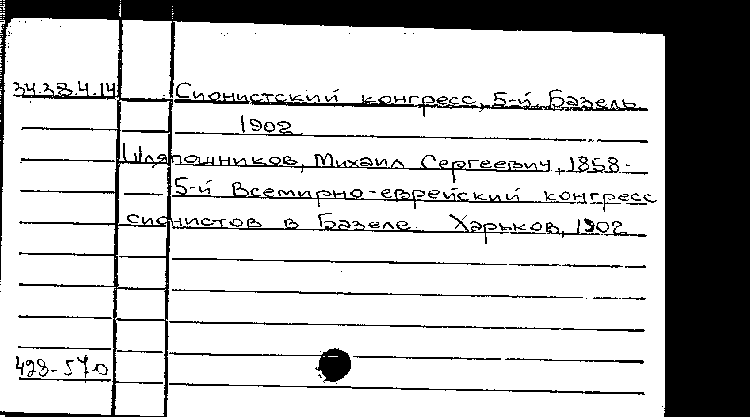 34.384.14 Сионистский конгресс, 5-й. Базель
1902
Шляпошников, Михаил Сергеевич, 1858-
5-й Всемирно-еврейский конгресс
сионистов в Базеле. Харьков, 1902
428-570